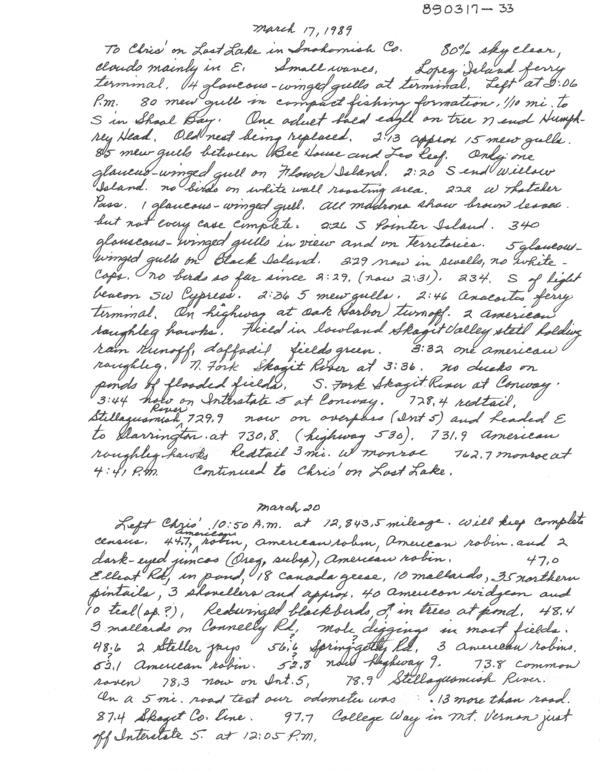 890317-33
March 17, 1989
To Chris' on Lost Lake in Snohomish Co. 80% sky clear,
clouds mainly in E. Small waves. Lopez Island ferry
terminal. 4 glaucous-winged gulls at terminal. Left at 2:06
P.m. 80 mew gulls in compact fishing formation, 1/10 mi. to
S in Shoal Bay. One adult bald eagle on tree N end Humph-
rey Head. Old nest being replaced. 2:13 approx 15 mew gulls.
85 mew gulls between Bee House and Leo Reef. Only one
glaucus-winged gull on Flower Island. 2:20 S end Willow
Island. no birds on white wall roosting area. 222 W Thatcher
Pass. 1 glaucous-winged gull. All madrona show brown leaves
but not every case complete. 2:26 S Pointer Island. 340
glauscous-winged gulls in view and on territories. 5 glaucous-
winged gulls on Black Island. 229 now in swells, no white-
caps. no birds so far since 2:29. (now 2:31). 234. S of light
beacon SW Cypress. 2:36 5 mew gulls. 2:46 Anacortes ferry
terminal. On highway at Oak Harbor turnoff. 2 American
roughleg hawks. Field in lowland Skagit Valley still holding
rain runoff, daffodil fields green. 3:32 one american
roughleg. N. Fork Skagit River at 3:36. no ducks on
ponds of flooded fields. S. Fork Skagit River at Conway.
3:44 now on Interstate 5 at Conway. 728.4 redtail,
Stillaguamish River 729.9 now on overpass (Int 5) and headed E
to Darrington at 730.8. (highway 530). 731.9 American
roughleg hawks Redtail 3 mi. W monroe 762.7 monroe at
4:41 P.m. Continued to Chris' on Lost Lake.
March 20
Left Chris' 10:50 A.m. at 12,843.5 mileage. Will keep complete
census. 44.7, american robin, american robin, American robin. and 2
dark-eyed juncos (Oreg. subsp), American robin. 47.0
Elliot Rd, in pond, 18 Canada geese, 10 mallards, 35 northern
pintails, 3 shovellers and approx. 40 American widgeon and
10 teal (sp.?), Redwinged blackbirds, ♂ in trees at pond. 48.4
3 mallards on Connelly Rd, mole diggings in most fields.
48.6 2 Steller jays 56.6 Rd, 3 American robins.
53.1 American robin. 53.8 now Highway 9. 73.8 common
raven 78.3 now on Int. 5, 78.9 Stillaguamish River.
On a 5 mi. road test our odometer was .13 more than road.
87.4 Skagit Co. line. 97.7 College Way in Mt. Vernon just
off Interstate 5. at 12:05 P.m.